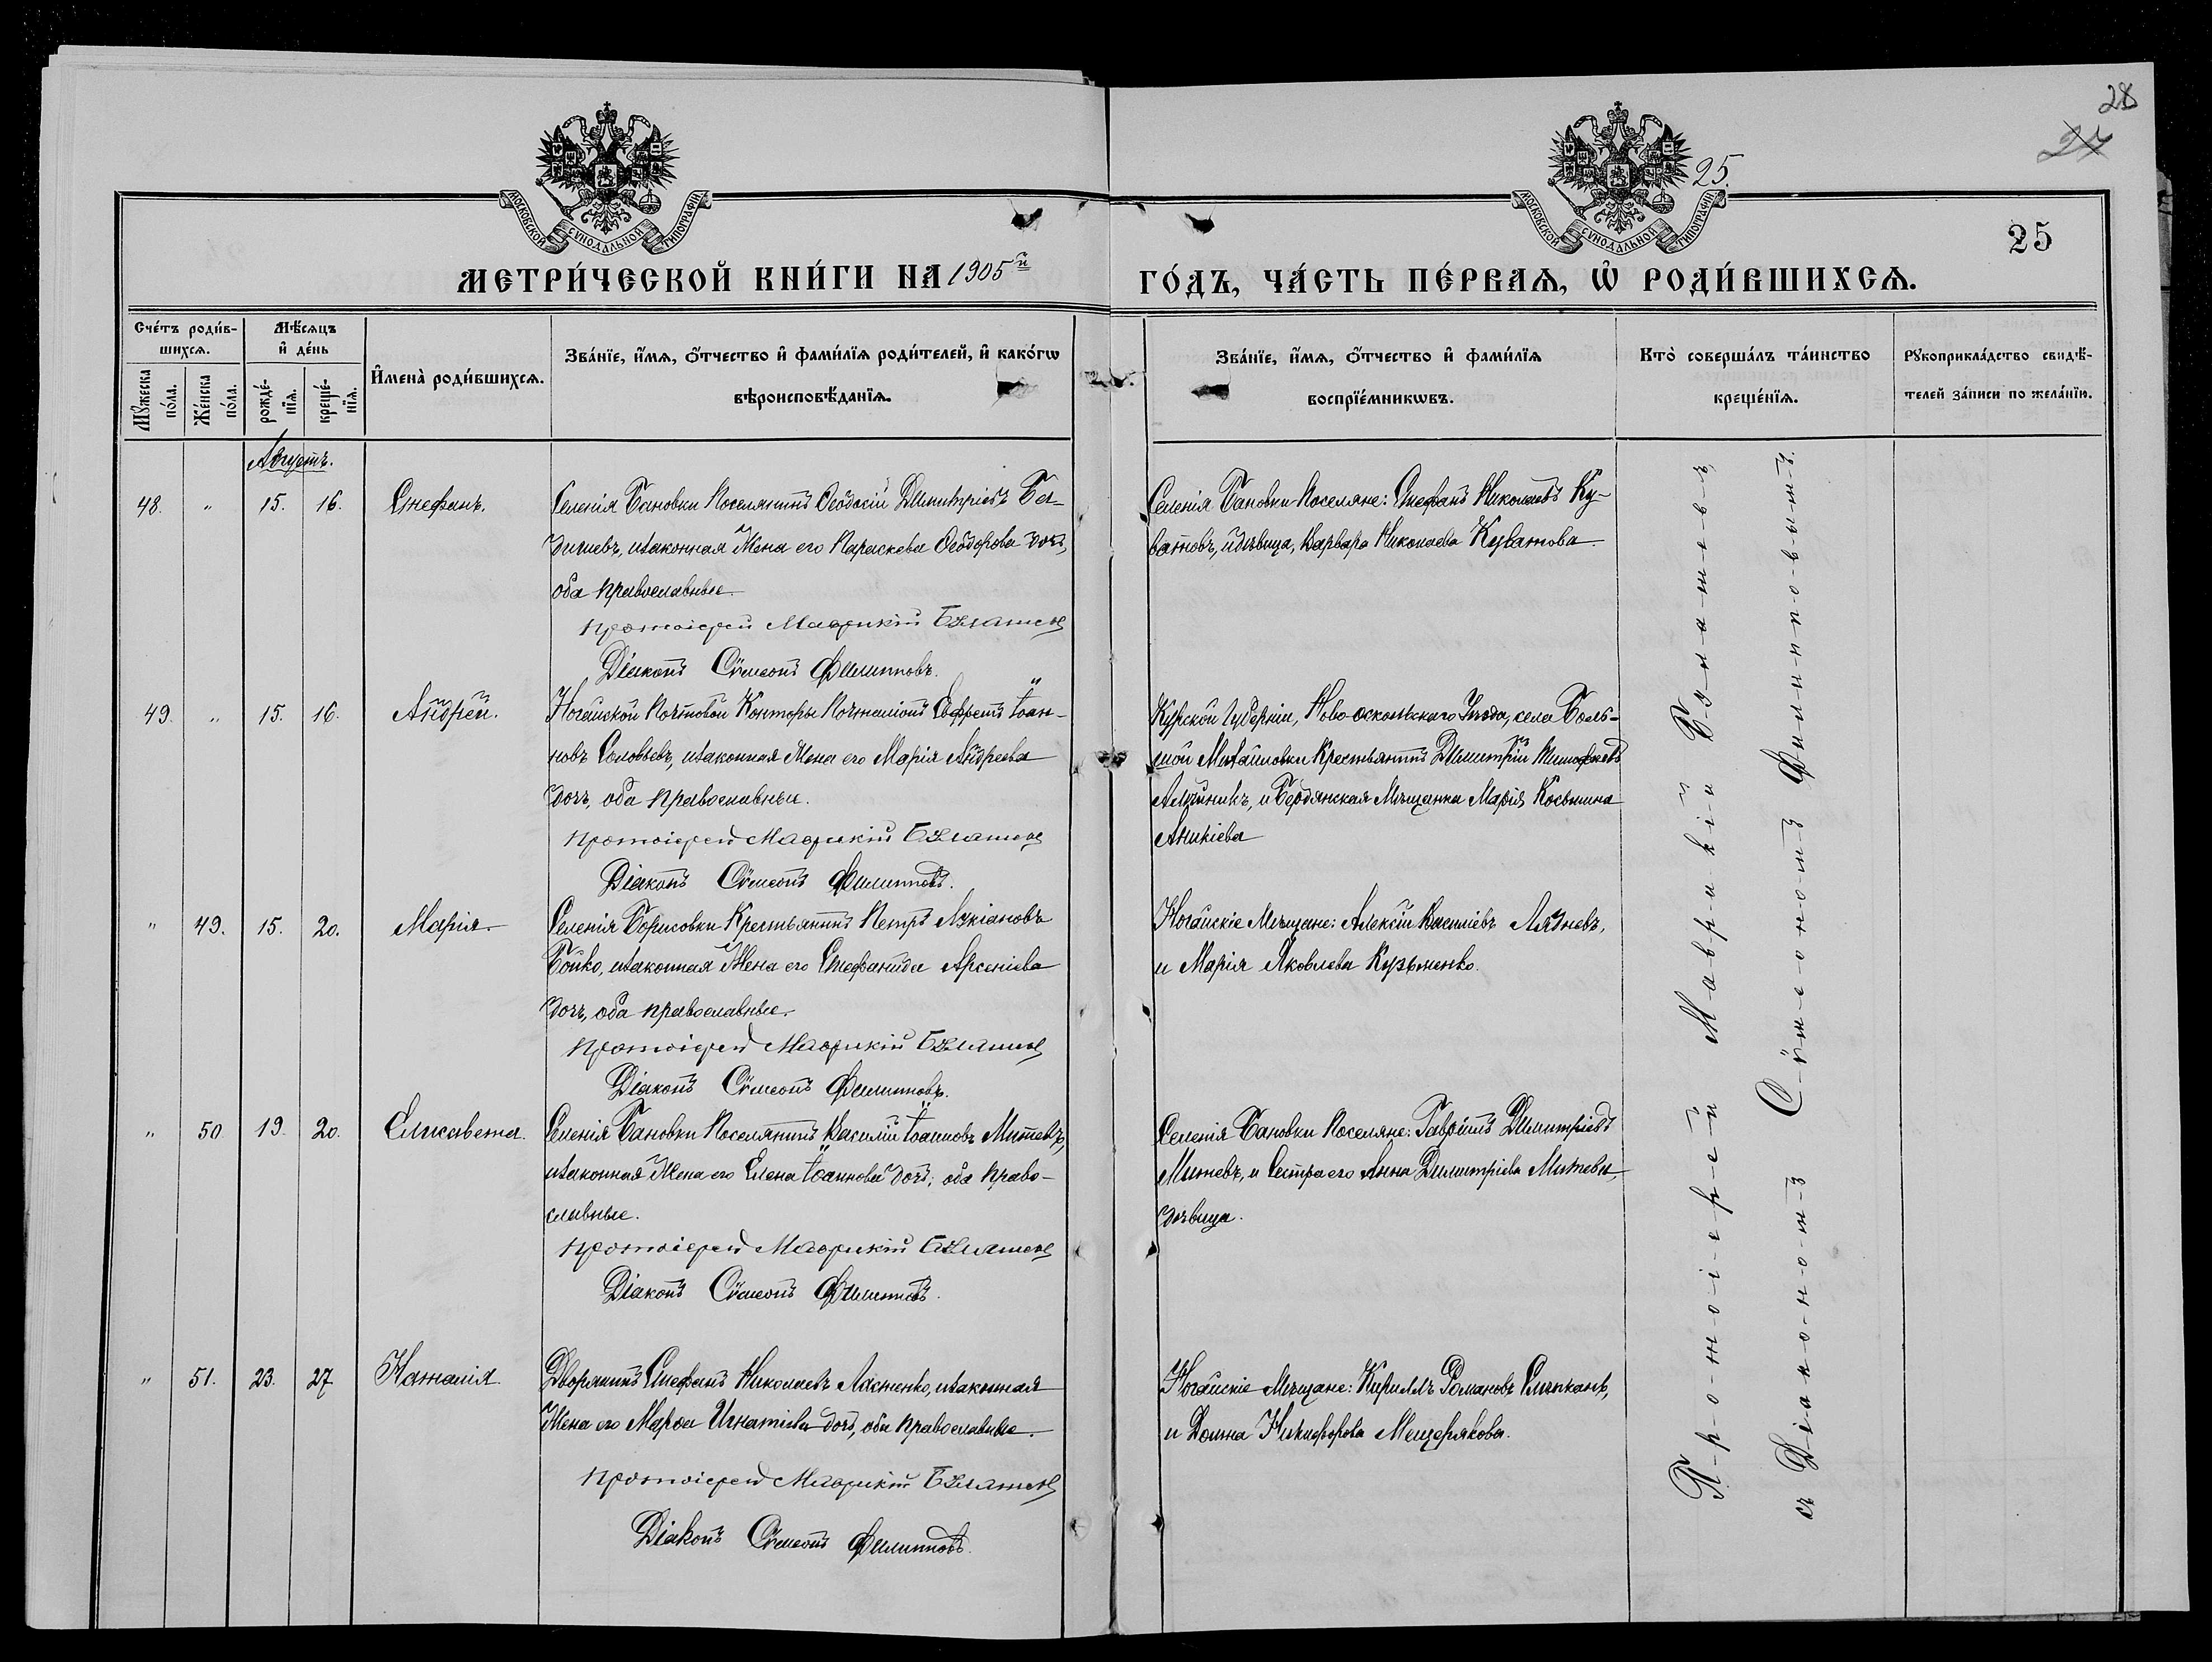 28
27
25.
25
МОСКОВСКОЙ СѴНОДАЛЬНОЙ ТИПОГРАФІИ
МОСКОВСКОЙ СѴНОДАЛЬНОЙ ТИПОГРАФІИ
МЕТРИ́ЧЕСКОЙ КНИ́ГИ НА 1905й
ГО́ДЪ, ЧА́СТЬ ПЕ́РВАѦ, Ѡ҆ РОДИ́ВШИХСѦ.
Сче́тъ роди́в-
шихсѧ.
Мꙋжеска по́ла.
Же́нска по́ла.
Мѣ́сѧцъ
и҆ де́нь
рожде́-
нїѧ.
креще́-
нїѧ.
И҆мена̀ роди́вшихсѧ.
Зва́нїе, и҆́мѧ, ѻ҆́тчество и҆ фами́лїѧ роди́телей, и҆ како́гѡ
вѣроисповѣ́данїѧ.
Зва́нїе, и҆́мѧ, ѻ҆́тчество и҆ фами́лїѧ
воспрїе́мникѡвъ.
Кто̀ соверша́лъ та́инство
креще́нїѧ.
Рꙋкоприкла́дство свидѣ́-
телей за́писи по жела́нїю.
Августъ.
48. " 15. 16. Стефанъ.
Селенія Бановки Поселянинъ Ѳеодосій Димитріевъ Ба-
дичевъ, и законная Жена его Параскева Ѳеодорова дочь,
оба православные.
Протоіерей Маврикій
Діаконъ Сѵмеонъ Филипповъ.
Селенія Бановки Поселяне: Стефанъ Николаевъ Ку-
ватовъ, и дѣвица, Варвара Николаева Куватова.
49. " 15. 16. Андрей.
Ногайской Почтовой Конторы Почталіонъ Ефремъ Іоан-
новъ Соловьевъ, и законная Жена его Марія Андреева
дочь, оба православные.
Протоіерей Маврикій
Діаконъ Сѵмеонъ Филипповъ.
Курской Губерніи, Ново-оскольскаго Уѣзда, села Боль-
шой Михайловки Крестьянинъ Димитрій Тимофеевъ
и Бердянская Мѣщанка Марія Косьмина
Аникіева
" 49. 15. 20. Марія.
Селенія Борисовки Крестьянинъ Петръ Лукіановъ
Бойко, и законная Жена его Стефанида Арсеніева
дочь, оба православные.
Протоіерей Маврикій
Діаконъ Сѵмеонъ Филипповъ.
Ногайскіе Мѣщане: Алексій Василіевъ Лядневъ,
и Марія Яковлева Кузьменко.
" 50. 19. 20. Елисавета.
Селенія Бановки Поселянинъ Василій Іоанновъ Митевъ,
и законная Жена его Елена Іоаннова дочь, оба право-
славные.
Протоіерей Маврикій
Діаконъ Сѵмеонъ Филипповъ.
Селенія Бановки Поселяне: Гавріилъ Димитріевъ
Митевъ, и Сестра его Анна Димитріева Митева,
дѣвица.
" 51. 23. 27. Наталія.
Дворянинъ Стефанъ Николаевъ и законная
Жена его Марѳа Игнатіева дочь, оба православные.
Протоіерей Маврикій
Діаконъ Сѵмеонъ Филипповъ.
Ногайскіе Мѣщане: Кириллъ Романовъ
и Домна Никифорова Мещерякова.
Протоіерей Маврикій
съ Діакономъ Сѵмеономъ Филипповымъ.